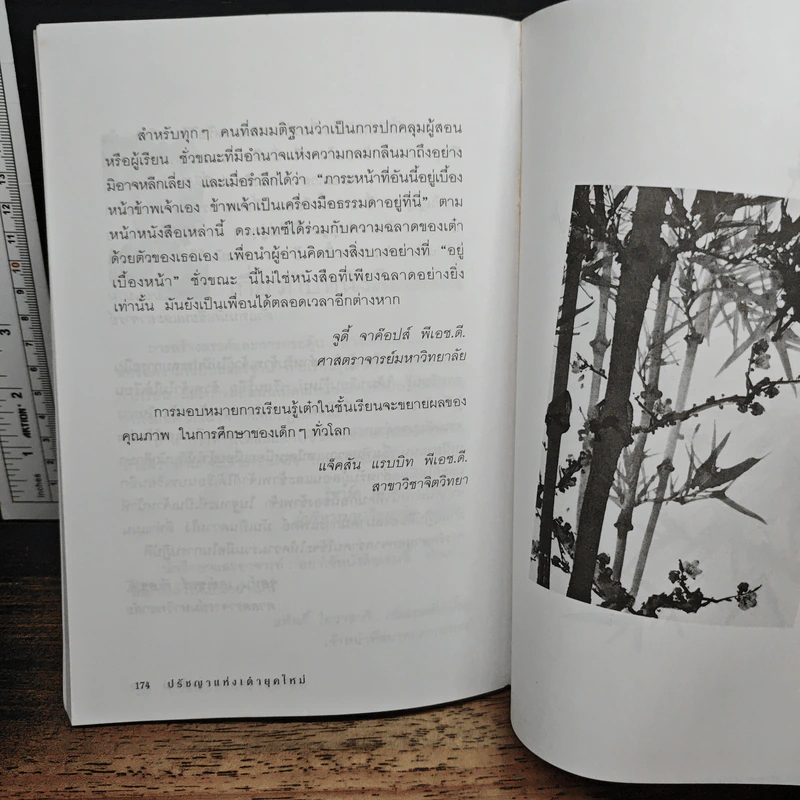 สำหรับทุกๆ คนที่สมมติฐานว่าเป็นการปกคลุมผู้สอน
หรือผู้เรียน ชั่วขณะที่มีอำนาจแห่งความกลมกลืนมาถึงอย่าง
มิอาจหลีกเลี่ยง และเมื่อรำลึกได้ว่า "ภาระหน้าที่อันนี้อยู่เบื้อง
หน้าข้าพเจ้าเอง ข้าพเจ้าเป็นเครื่องมือธรรมดาอยู่ที่นี่" ตาม
หน้าหนังสือเหล่านี้ ดร.เมทซ์ได้ร่วมกับความฉลาดของเต๋า
ด้วยตัวของเธอเอง เพื่อนำผู้อ่านคิดบางสิ่งบางอย่างที่ "อยู่
เบื้องหน้า" ชั่วขณะ นี้ไม่ใช่หนังสือที่เพียงฉลาดอย่างยิ่ง
เท่านั้น มันยังเป็นเพื่อนได้ตลอดเวลาอีกต่างหาก
จูดี้ จาค๊อปส์ พีเอช.ดี.
ศาสตราจารย์มหาวิทยาลัย
การมอบหมายการเรียนรู้เต๋าในชั้นเรียนจะขยายผลของ
คุณภาพ ในการศึกษาของเด็กๆ ทั่วโลก
แจ็คสัน แรบบิท พีเอช.ดี.
สาขาวิชาจิตวิทยา
174 ปรัชญาแห่งเต๋ายุคใหม่
13
12
11
10
3
2
1
Inches